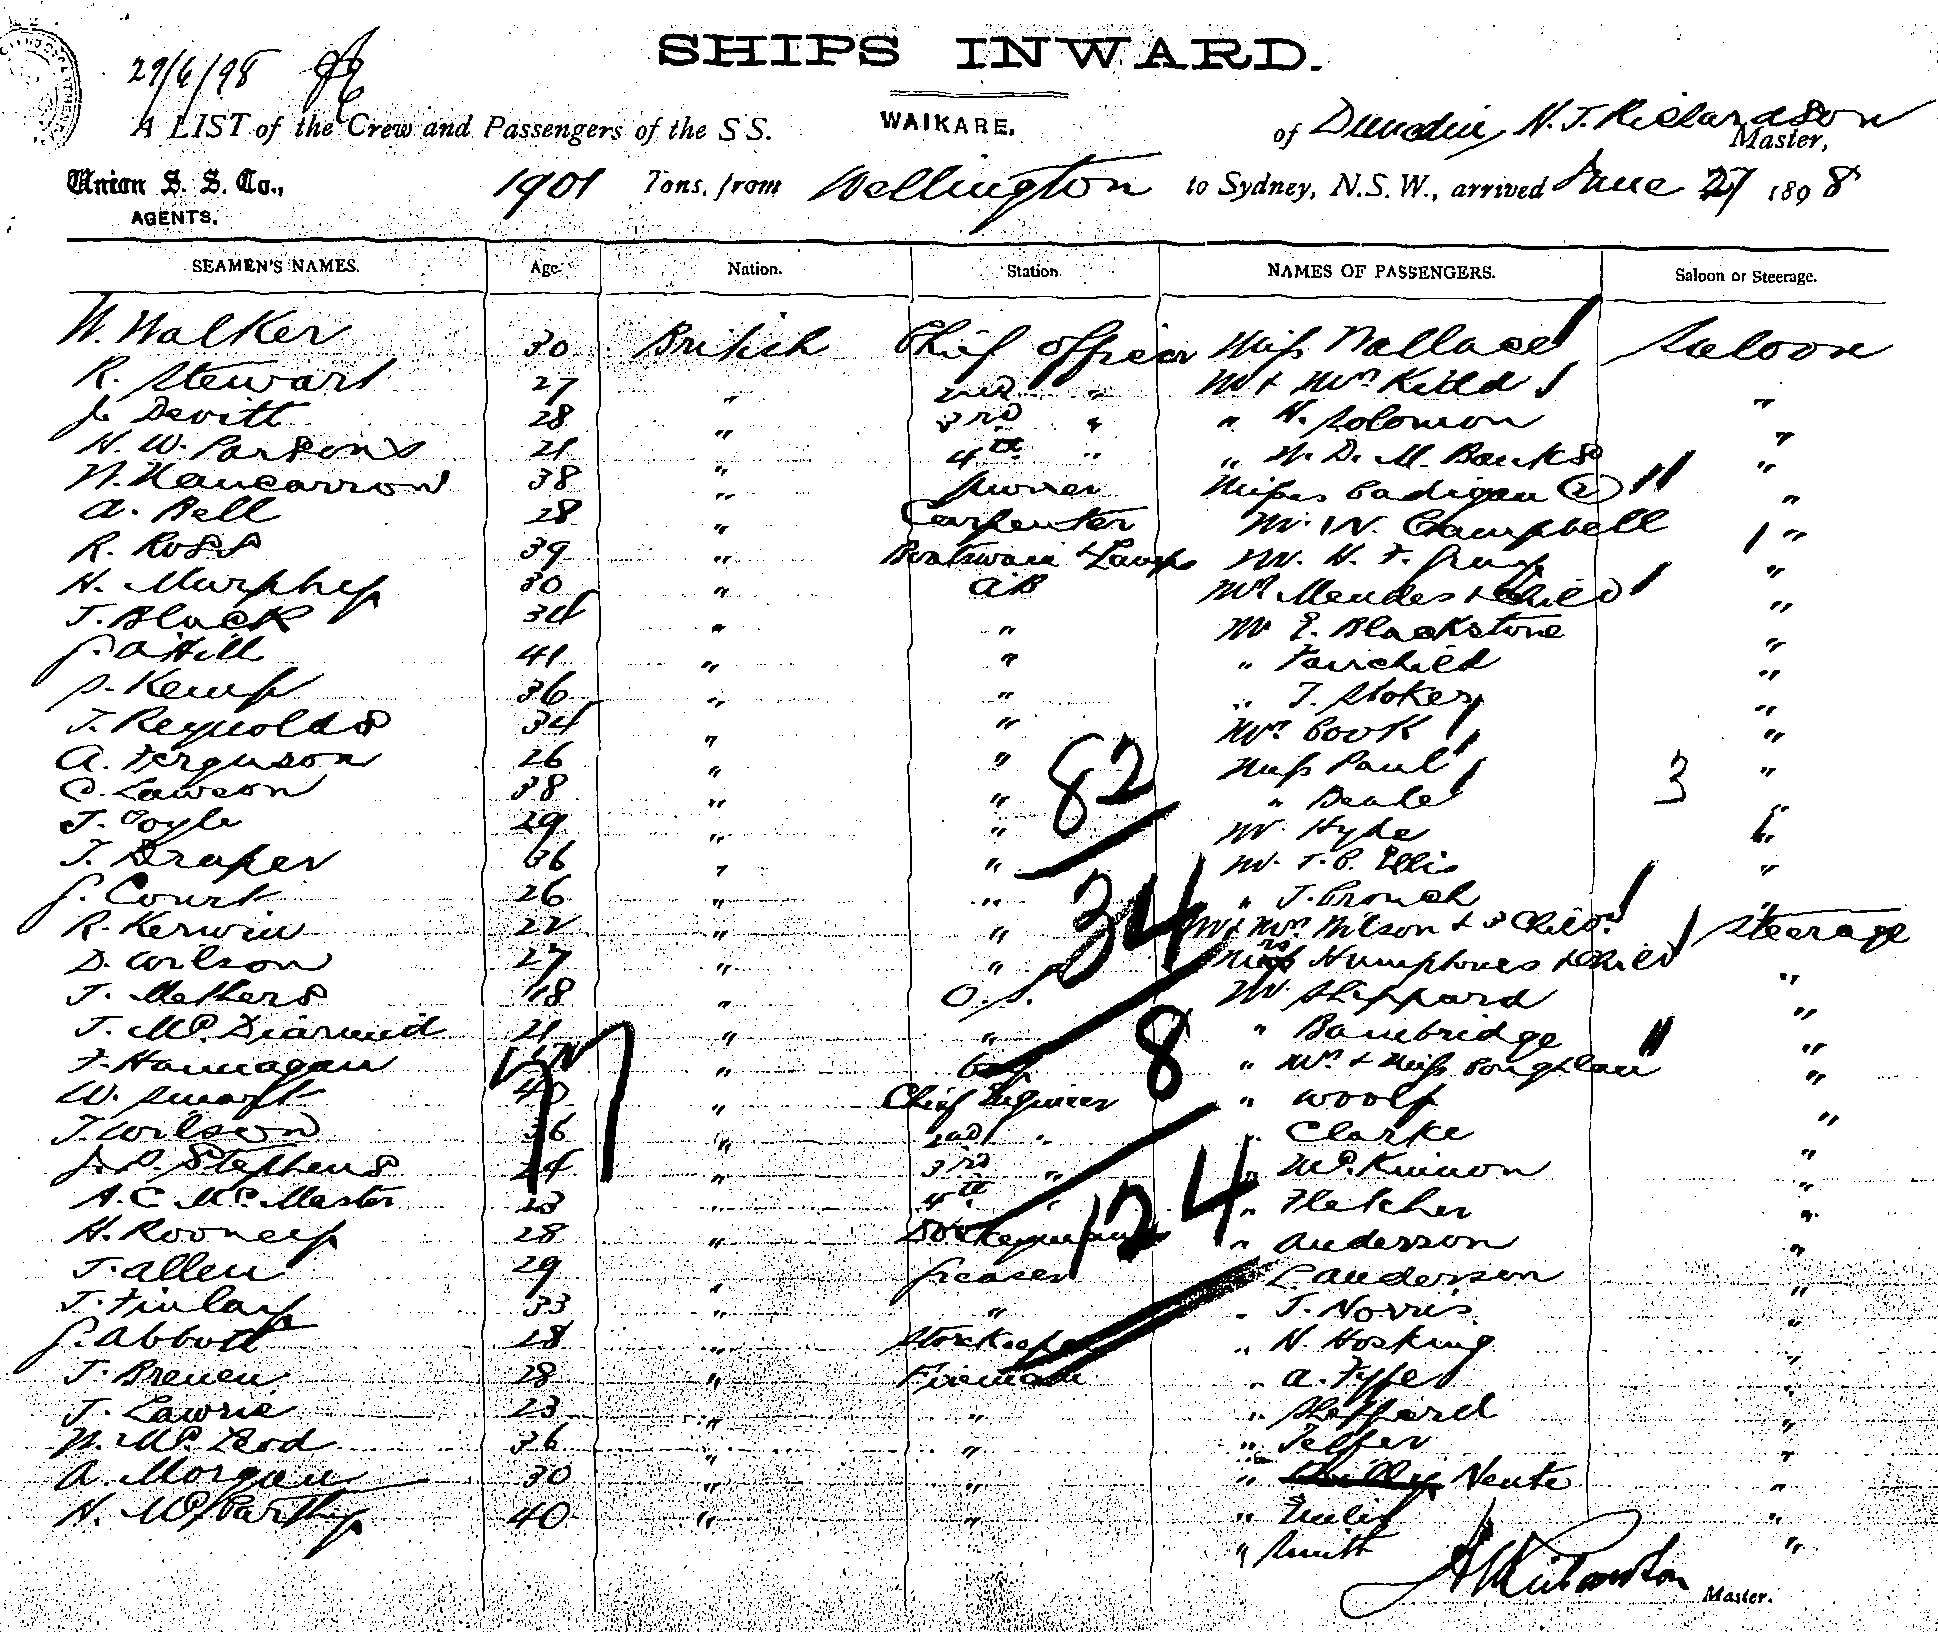 29/6/98
SHIPS INWARD.
A LIST of the Crew and Passengers of the S S. WAIKARE. of Dunedin, N. J. Richardson Master,
Union S. S. Co., AGENTS. 1901 Tons, from Wellington to Sydney, N.S.W., arrived June 27 1898
SEAMEN'S NAMES. Age. Nation. Station NAMES OF PASSENGERS. Saloon or Steerage.
W. Walker 30 British Chief Officer Miss Wallace Saloon
R. Stewart 27 " 2nd " Mr & Mrs Kidd "
J. Devitt 28 " 3rd " " H. Solomon "
H. W. Parsons 21 " 4th " " W. D. M. Banks "
38 " Misses Cadigan (2) "
A. Bell 28 " Carpenter Mr. W. Campbell "
R. Ross 39 " Boatswain & Lamps Mr. H. F. "
H. Murphy 30 " AB Mrs Mendes & Child "
J. Black 34 " " Mr E. Blackstone "
G. A Hill 41 " " " Fairchild "
S. Kemp 36 " " " J. Stokes "
J. Reynolds 34 " " Mrs Cook "
A. Ferguson 26 " " Miss Paul "
C. Lawson 38 " " " Beale 3
J. 29 " " Mr. Hyde "
J. Draper 36 " " Mr. T. C. Ellis "
G. Court 26 " " " J. Crouch "
R. Kerwin 22 " " Mr & Mrs Wilson & 3 Child. Steerage
D. Wilson 27 " " Mrs Humphries & Child "
J. Mathers 18 " O. S. Mr. Sheppard "
J. McDiarmid 21 " " " Bambridge "
F. Hannagan " Boy " Mrs & Miss "
W. Smart 40 " Chief Engineer " Woolf "
J. Wilson 36 " 2nd " " Clarke "
J. P. Stephens 24 " 3rd " " McKinnon "
A. C McMaster 23 " 4th " " Fletcher "
H. Rooney 28 " " Anderson "
J. Allen 29 " Greaser " L. Anderson "
J. Finlay 33 " " " J. Norris "
G. Abbott 28 " Storekeeper " H. Hosking "
J. Breuen 28 " Fireman " A. Fyfe "
J. Lawrie 23 " " " Sheppard "
N. McLeod 36 " " " Telfer "
A. Morgan 30 " " " Neute "
H. McCarthy 40 " " "
" Smith "
82
34
8
124
77
Master.